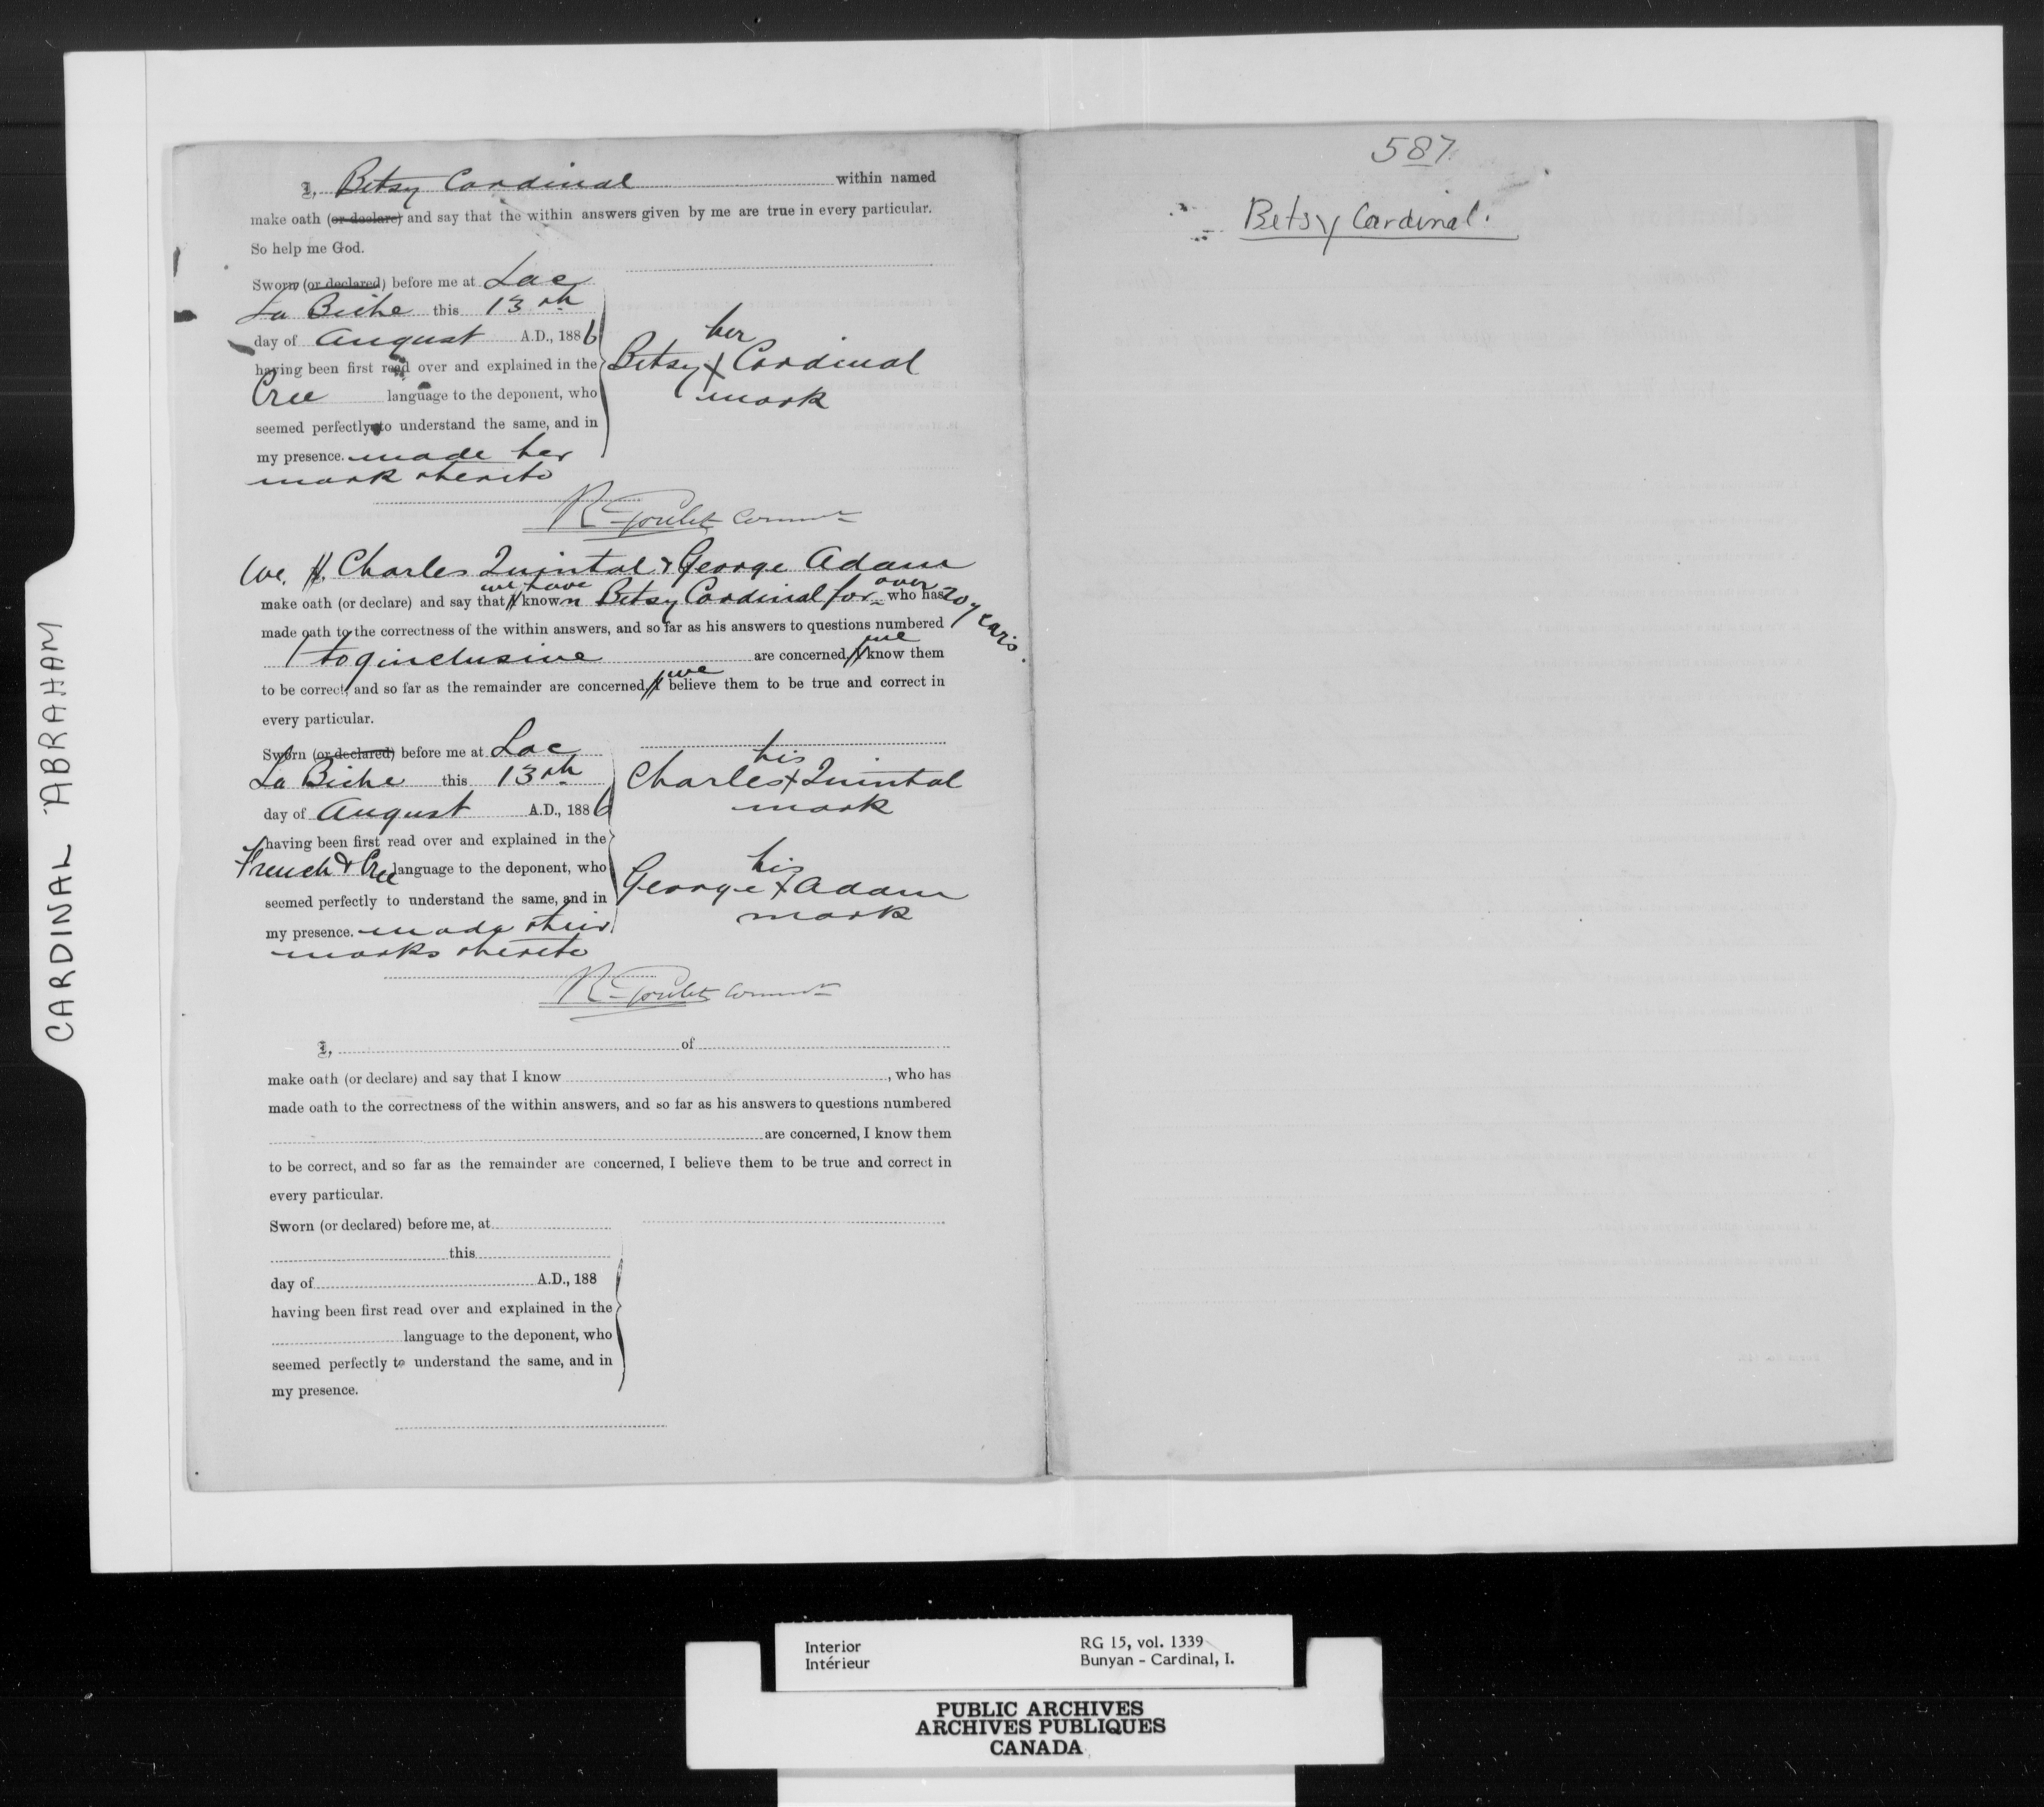 CARDINAL ABRAHAM
I, Betsy Cardinal within named
make oath (or declare) and say that the within answers given by me are true in every particular.
So help me God.
Sworn (or declared) before me at Lac
La Biche this 13th
day of August A.D., 1886
having been first read over and explained in the
Cree language to the deponent, who
seemed perfectly to understand the same, and in
my presence. made her
mark thereto
her
Betsy X Cardinal
mark
R Goulet Commr
We, I, Charles Quintal & George Adam
we have over
make oath (or declare) and say that I known Betsy Cardinal for who has 20 years.
made oath to the correctness of the within answers, and so far as his answers to questions numbered
1 to 9 inclusive are concerned, I we know them
to be correct, and so far as the remainder are concerned, I we believe them to be true and correct in
every particular.
Sworn (or declared) before me at Lac
La Biche this 13th
day of August A.D., 1886
having been first read over and explained in the
French & Cree language to the deponent, who
seemed perfectly to understand the same, and in
my presence. made their
marks thereto
his
Charles X Quintal
mark
his
George X Adam
mark
R Goulet Commr
I, of
make oath (or declare) and say that I know , who has
made oath to the correctness of the within answers, and so far as his answers to questions numbered
are concerned, I know them
to be correct, and so far as the remainder are concerned, I believe them to be true and correct in
every particular.
Sworn (or declared) before me, at
this
day of A.D., 188
having been first read over and explained in the
language to the deponent, who
seemed perfectly to understand the same, and in
my presence.
587
Betsy Cardinal.
Interior RG 15, vol. 1339
Intérieur Bunyan - Cardinal, I.
PUBLIC ARCHIVES
ARCHIVES PUBLIQUES
CANADA